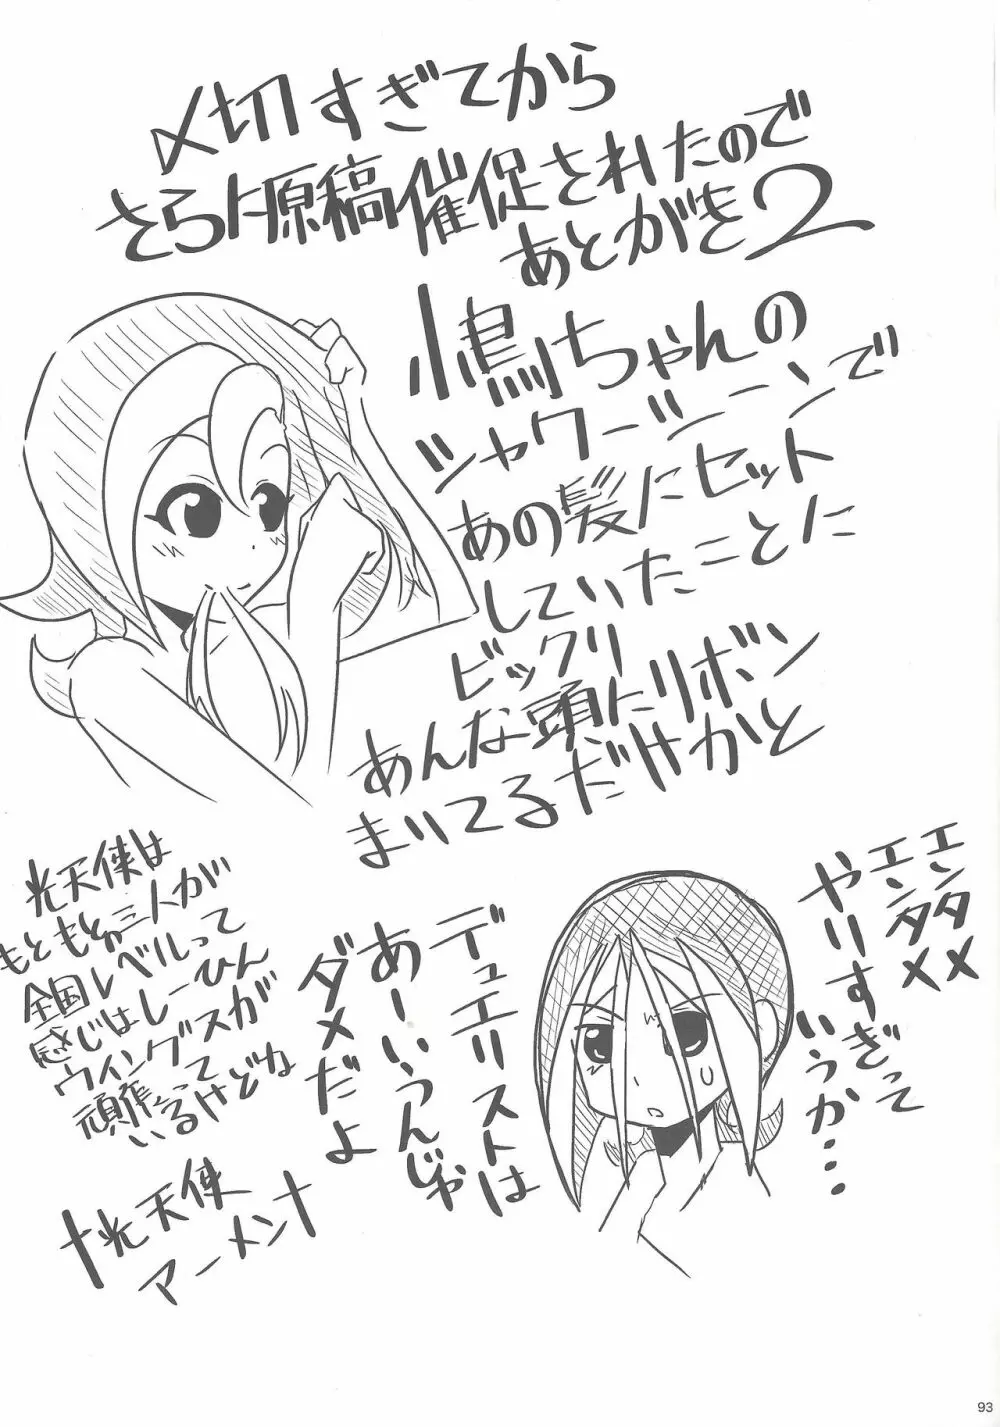 〆切すぎてから
さらに原稿催促されたので
あとがき2
小鳥ちゃんの
シャワーシーンで
あの髪にセット
していたことに
ビックリ
あんな頭にリボン
まいてるだけかと
エンタメ
エンタメ
やりすぎって
いうか・・・
デュエリストは
あーいうんじゃ
ダメだよ
光天使は
もともと三人が
全国レベルって
感じはしーひん
ウイングスガ
頑張って
いるけどね
†光天使
アーメン†
93